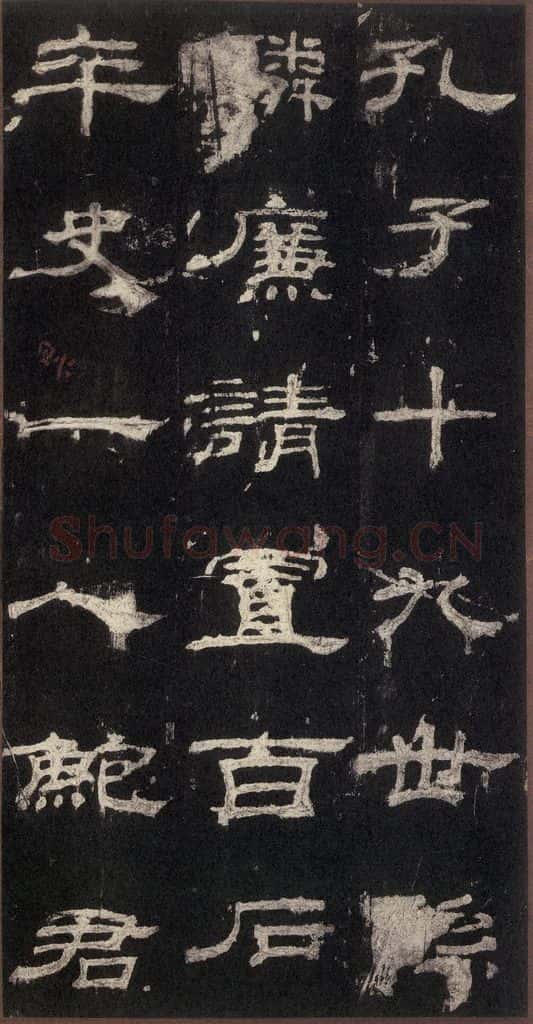 孔子十九世孫
麟廉請置百石
卒史一人鮑君
Shufawang.CN